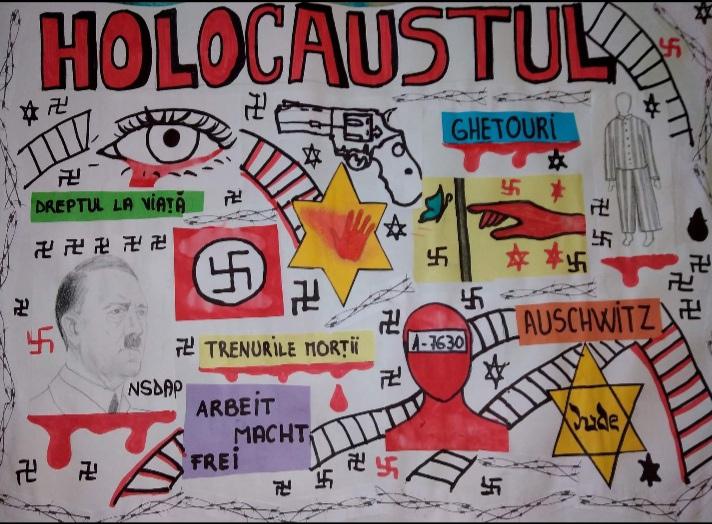 HOLOCAUSTUL
GHETOURI
DREPTUL LA VIAȚĂ
AUSCHWITZ
A-7630
TRENURILE MORȚII
NSDAP
ARBEIT
MACHT
FREI
Jude